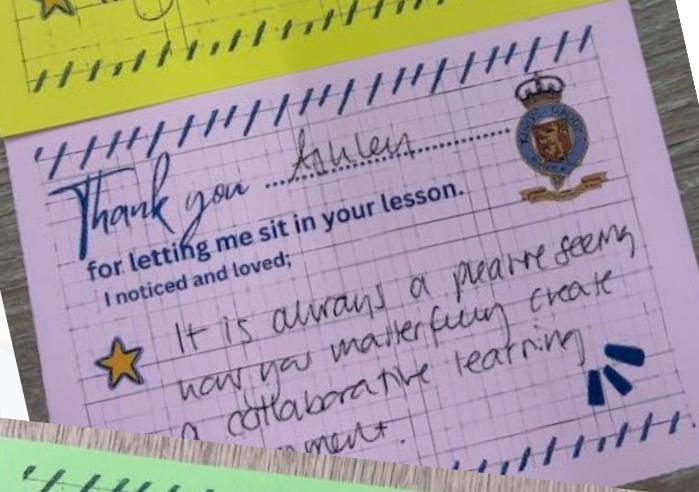 Thank you Ashleys
for letting me sit in your lesson.
I noticed and loved;
It is always a pleasure seeing
how you masterfully create
a collaborative learning
nment.